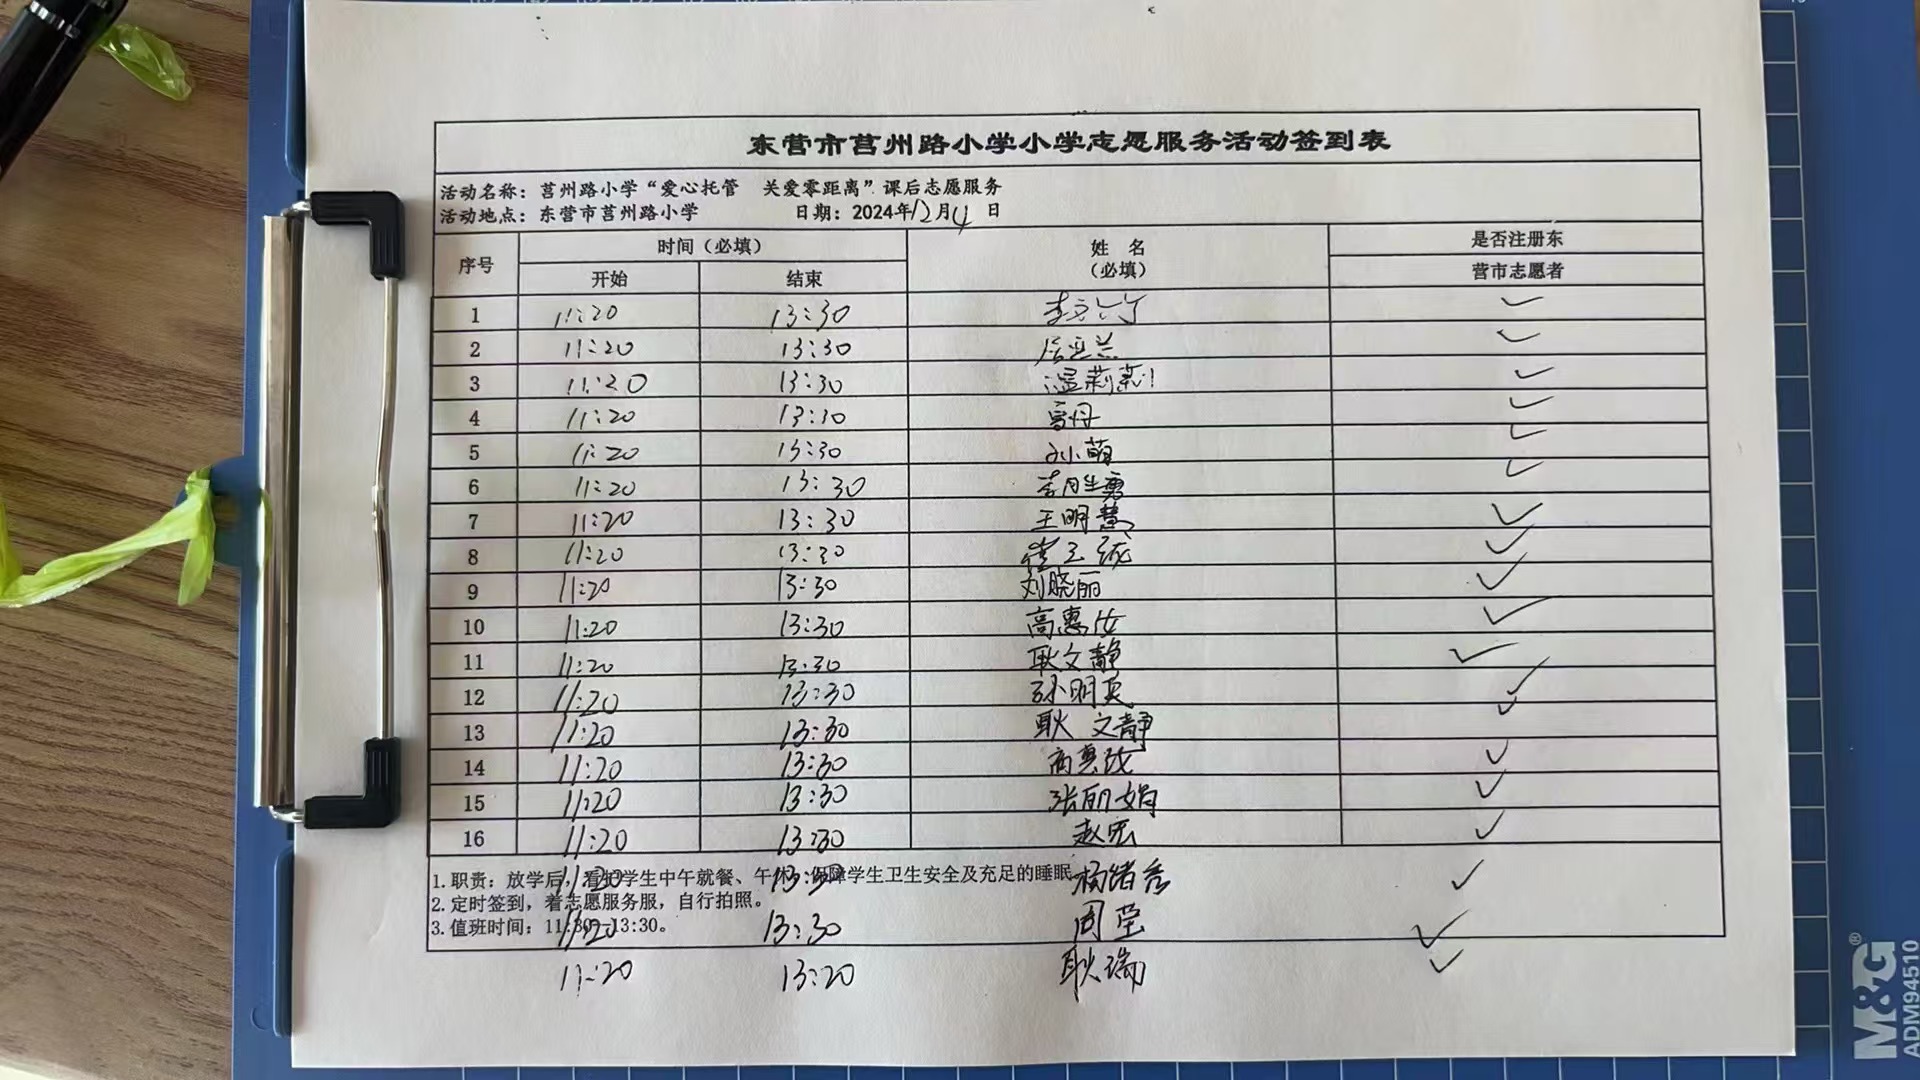 东营市莒州路小学小学志愿服务活动签到表
活动名称：莒州路小学“爱心托管 关爱零距离”课后志愿服务
活动地点：东营市莒州路小学 日期：2024年12月4日
序号 时间（必填） 姓名（必填） 是否注册东营市志愿者
开始 结束
1 11:20 13:30 ✓
2 11:20 13:30 ✓
3 11:20 13:30 温莉莉 ✓
4 11:20 13:30 ✓
5 11:20 13:30 孙小萌 ✓
6 11:20 13:30 ✓
7 11:20 13:30 王明慧 ✓
8 11:20 13:30 崔玉 ✓
9 11:20 13:30 刘晓丽 ✓
10 11:20 13:30 高惠汝 ✓
11 11:20 13:30 耿文静 ✓
12 11:20 13:30 孙明真 ✓
13 11:20 13:30 耿文静 ✓
14 11:20 13:30 高惠 ✓
15 11:20 13:30 张丽娟 ✓
16 11:20 13:30 赵宏 ✓
1.职责：放学后，看护学生中午就餐、午休，保障学生卫生安全及充足的睡眠。
11:20 13:30 杨绪秀 ✓
2.定时签到，着志愿服务服，自行拍照。
3.值班时间：11:30-13:30。
11:20 13:30 周莹 ✓
11:20 13:20 耿瑞 ✓
M&G®
ADM94510